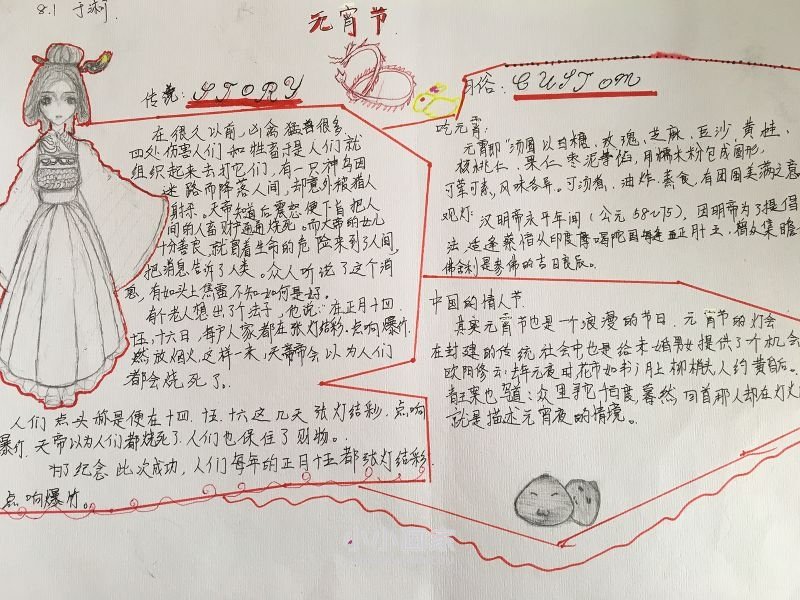 8.1 于
元宵节
传说: STORY
在很久以前,凶禽猛兽很多,
四处伤害人们和牲畜于是人们就
组织起来去打它们,有一只神鸟因
迷路而降落人间,却意外被猎人
射死。天帝知道后震怒便下旨把人
间的人畜财产通通烧死。而天帝的女儿
十分善良,就冒着生命的危险来到了人间,
把消息告诉了人类。众人听说了这个消
息,有如头上焦雷不知如何是好。
有个老人想出了个法子,他说:在正月十四、
十五、十六日,每户人家都在张灯结彩、点响爆竹、
燃放烟火,这样一来,天帝会以为人们
都会烧死了。
人们点头称是便在十四、十五、十六这几天张灯结彩、点响
爆竹.天帝以为人们都烧死了.人们也保住了财物。
为了纪念此次成功,人们每年的正月十五都张灯结彩,
点响爆竹。
习俗: CUSTOM
吃元宵:
元宵即"汤圆以白糖、玫瑰、芝麻、豆沙、黄桂、
核桃仁、果仁、枣泥等馅,用糯米粉包成圆形,
可荤可素,风味各异。可汤煮、油炸、蒸食,有团圆美满之意
观灯: 汉明帝永平年间(公元58-75),因明帝为了提倡
法 适逢蔡愔从印度摩喝陀国 正月十五,僧众集瞻
佛舍利是参佛的吉日良辰。
中国的情人节.
其实元宵节也是一个浪漫的节日.元宵节的灯会
在封建的传统社会中也是给未婚男女提供了个机会
欧阳修云:去年元夜时花市如书;月上柳梢头,人约黄昏后。
青玉案也写道:众里寻它千百度,蓦然回首那人却在灯火
就是描述元宵夜的情境。